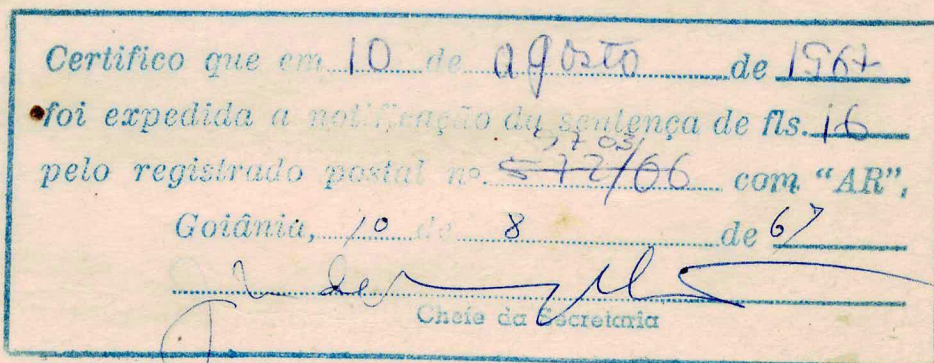 Certifico que em 10 de agosto de 1967
foi expedida a notificação da sentença de fls. 16
pelo registrado postal nº 572/66 com "AR",
Goiânia, 10 de 8 de 67
Chefe da Secretaria